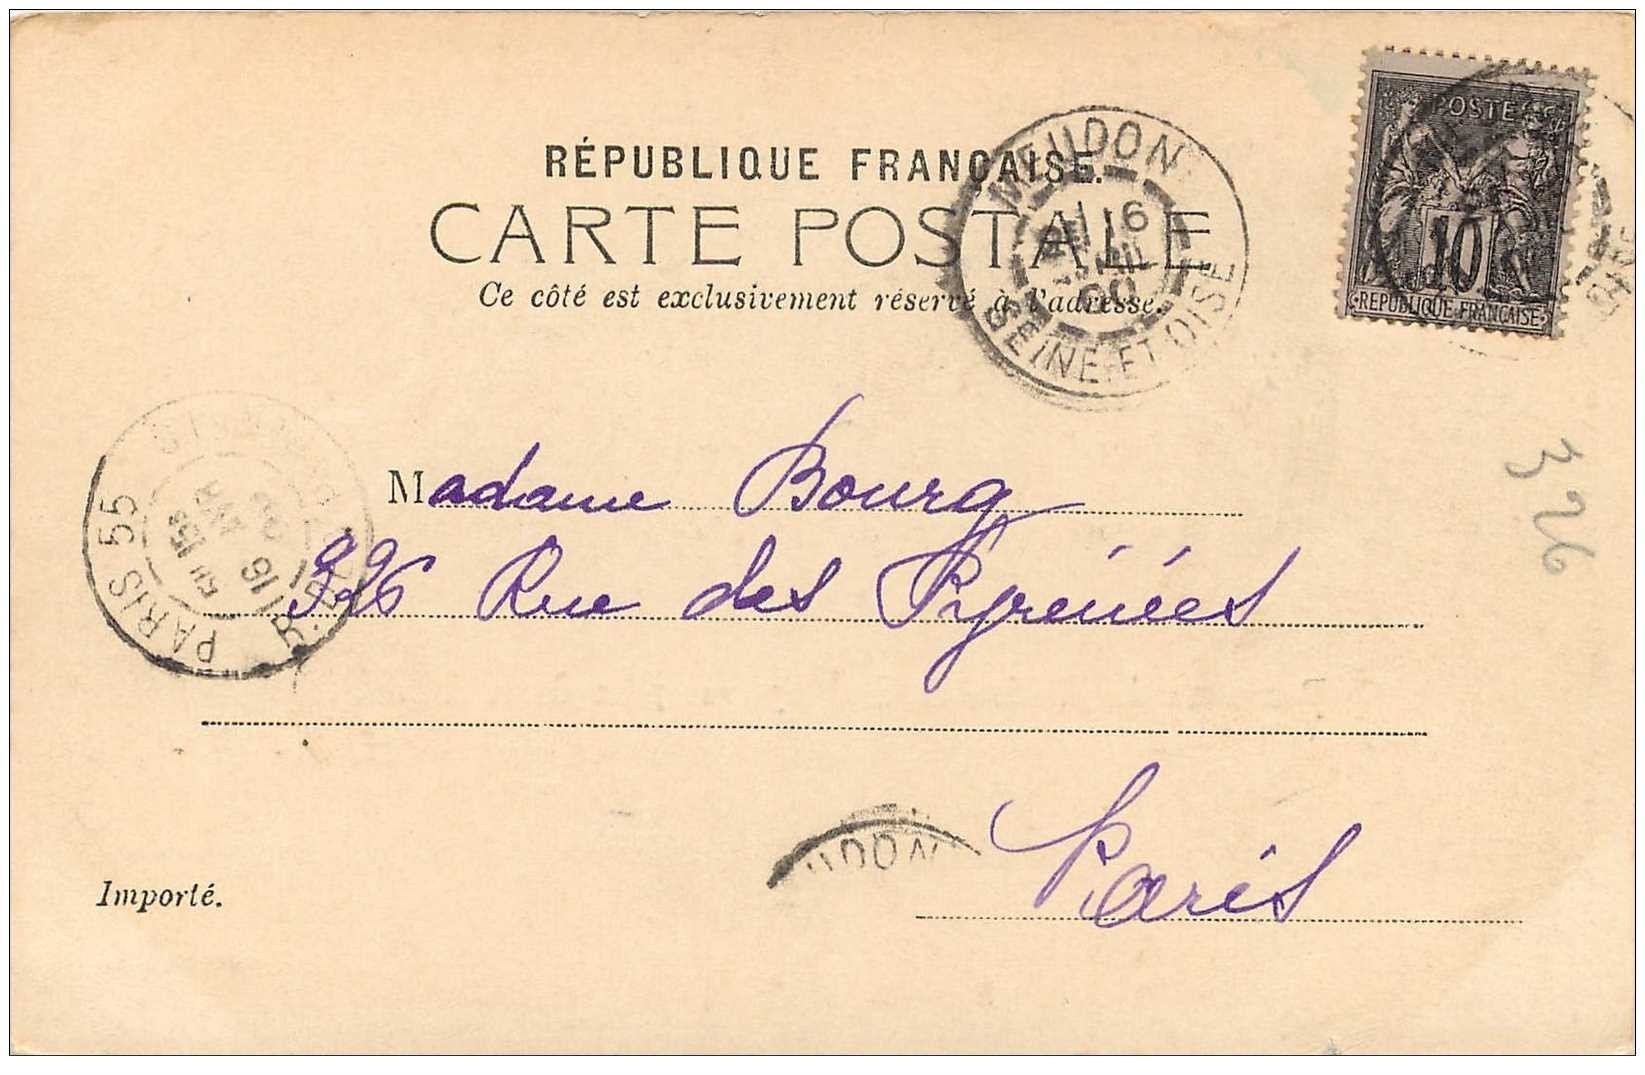 RÉPUBLIQUE FRANÇAISE.
CARTE POSTALE
Ce côté est exclusivement réservé à l'adresse.
MEUDON
16
00
SEINE-ET-OISE
POSTES
10
REPUBLIQUE FRANÇAISE
326
PARIS 55
16
Madame Bourg
326 Rue des Pyrénées
Paris
UDON
Importé.